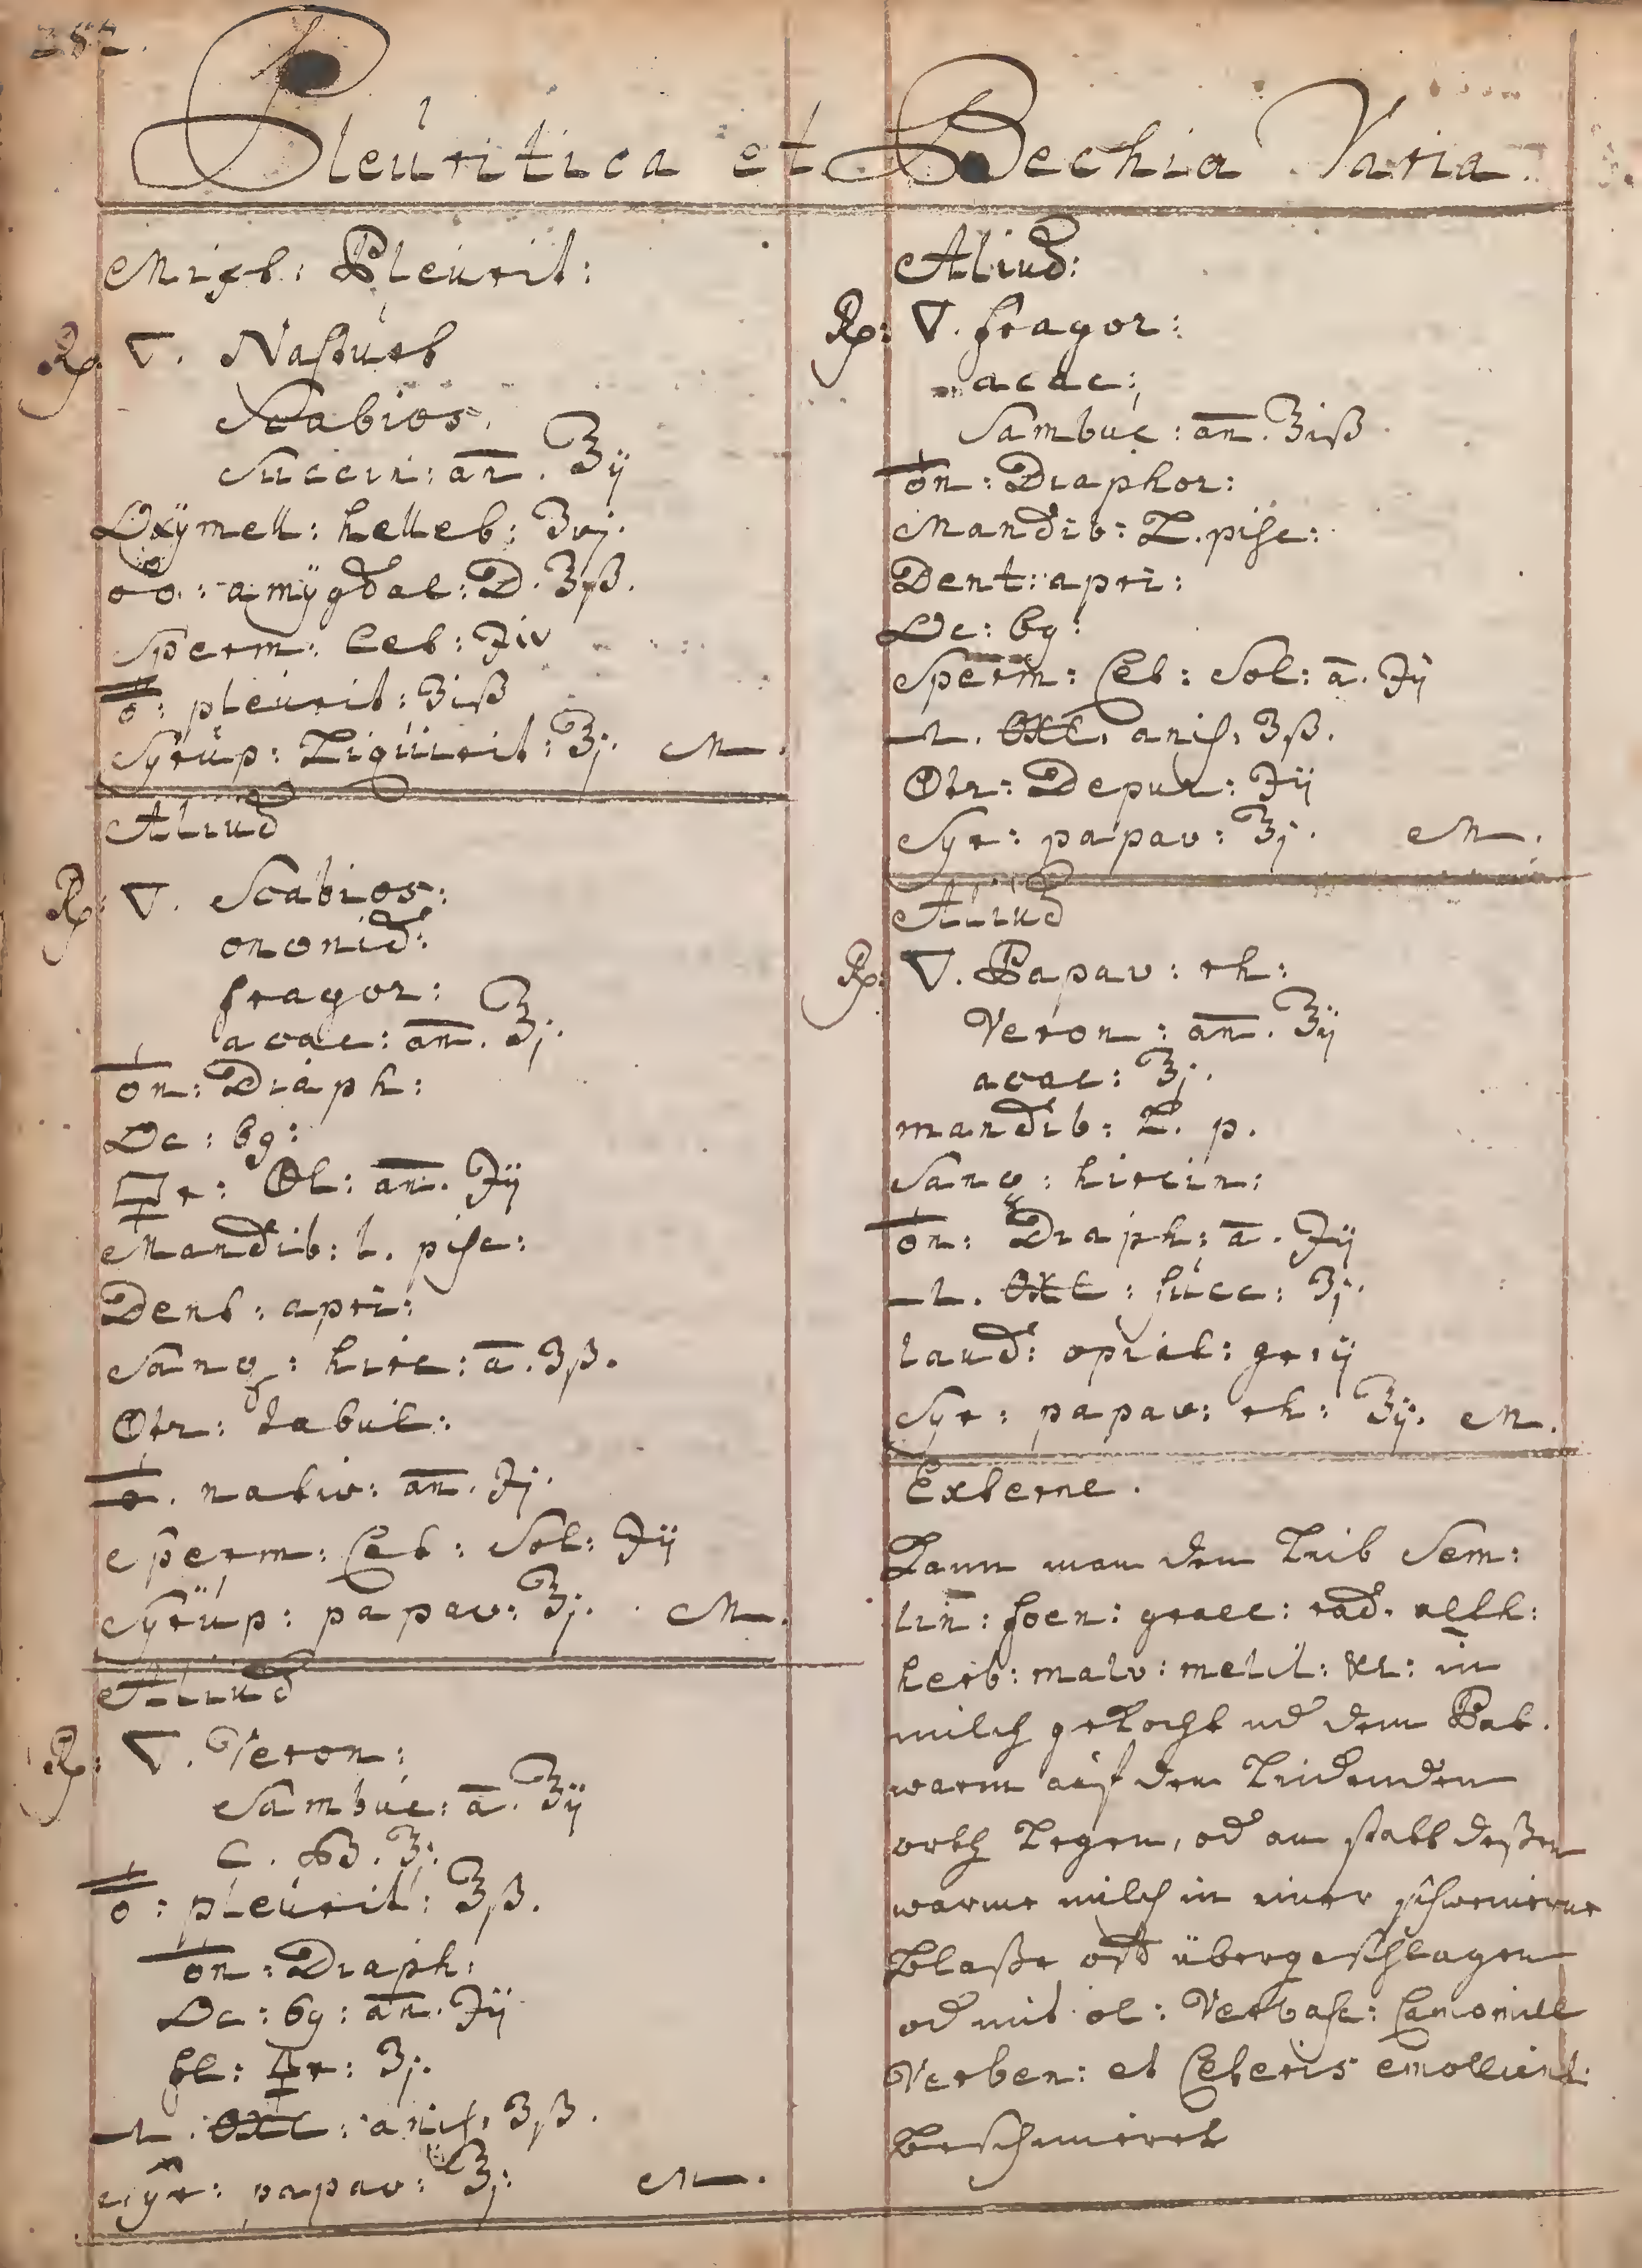 252.
Pleuritica et Bechia Varia.
Mixt: Pleurit:
Rp. 🜄. Nasturt
Scabios.
Succin: an. ℥ij
Oxÿmell: helleb: ʒvj.
oo: amÿgdal: D. ʒß.
Sperm: Cet: ℈iv
pleurit: ʒiß
Syrup: Liquirit: ℥j. M.
Aliud
Rp: 🜄. Scabios:
ononid:
fragor:
acac: an. ℥j.
♁n: Diaph:
Oc: 69:
Ol: an. ℈ij
Mandib: l. pisc:
Dent: apri:
Sang: hirc: a. ʒß.
tabul:
♁. nativ: an. ℈j.
Sperm: Cet: Sol: ℈ij
Syrup: papav: ℥j. M.
Aliud
Rp: 🜄. Veron:
Sambuc: a. ℥ij
pleurit: ℥ß.
♁n: Diaph:
Oc: 69: an. ℈ij
fl: ʒj.
anis: ʒß.
Syr: papav: ℥j: M.
Aliud:
Rp: 🜄. fragor:
acac:
Sambuc: an. ℥iß
♁n: Diaphor:
Mandib: L. pisc:
Dent: apri:
Oc: 69:
Sperm: Cet: Sol: a. ℈ij
anis: ʒß.
Depur: ℈ij
Syr: papav: ℥j. M.
Aliud
Rp: 🜄. Papav: rh:
Veron: an. ℥ij
acac: ℥j.
mandib: L. p.
Sang: hircin:
♁n: Diaph: a. ℈ij
succ: ʒj.
laud: opiat: gr: ij
Syr: papav: rh: ℥ij. M.
Externe.
Kann man dem Leib Sem:
lin: foen: graec: rad. alth:
herb: malv: melil: in
milch gekocht ud dem Pat.
warm auf den Leidenden
orth Legen, od an statt deßen
warme milch in einer schweinerne
Blaße oft übergeschlagen
od mit ol: Verbasc: Camomill
Verben: et Ceteris emollient:
Beschmieret